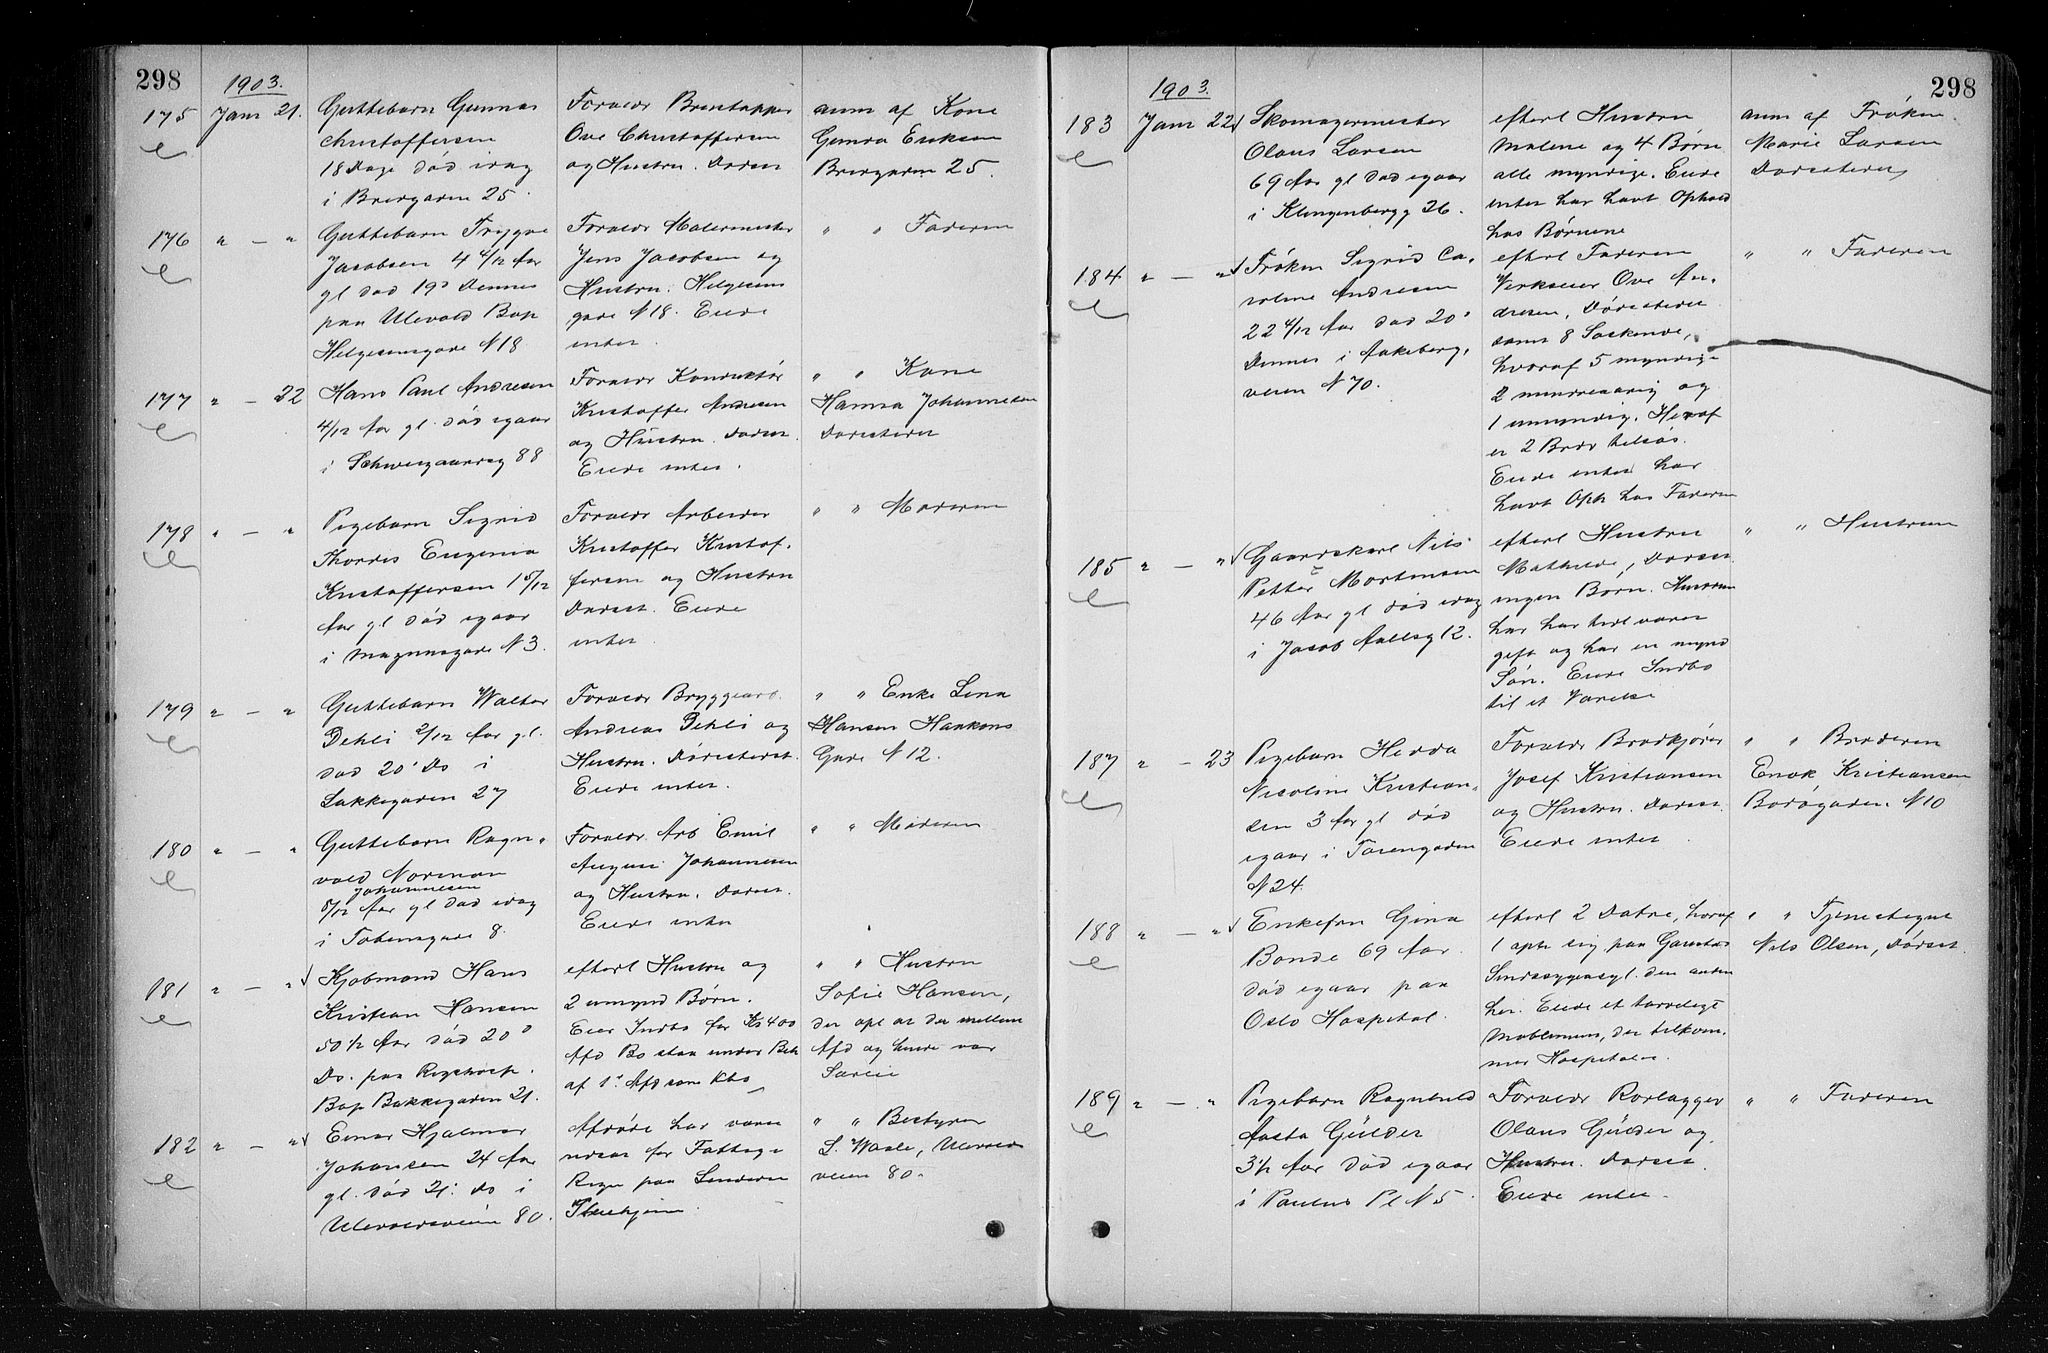 298
1903.
175 Jan 21.
Guttebarn Gunnar
Christoffersen
18 Dage død idag
i Brergaden 25.
Forældr
Ove Christoffersen
og Hustru. Dødsst
anm af Kone
Eriksen
Brergaden 25.
176 " — "
Guttebarn Trygve
Jacobsen 4 4/12 Aar
gl død 19d Dennes
paa Ulevold Bop
Helgesensgade N 18
Forældr Malermester
Jens Jacobsen og
Hustru. Helgesens
gade N 18. Eiede
intet.
" " Faderen
177 " — 22
Hans Paul Andresen
4/12 Aar gl. død igaar
i Schweigaardsg 88
Forældr Konduktør
Kristoffer Andresen
og Hustru. Dødsst.
Eiede intet.
" " Kone
Hanna Johannesen
Dødsstedet
178 " — "
Pigebarn Sigrid
Thordis Eugenia
Kristoffersen 1 5/12
Aar gl død igaar
i Magnusgade N 3.
Forældr Arbeider
Kristoffer Kristof-
fersen og Hustru
Dødsst. Eiede
intet.
" " Moderen
179 " — "
Guttebarn Walter
Dehli 2/12 Aar gl.
død 20' Ds i
Lakkegaden 27
Forældr Bryggearb.
Andreas Dehli og
Hustru. Dødsstedet.
Eiede intet.
" " Enke Lina
Hansen Haakons
Gade N 12.
180 " — "
Guttebarn Ragn-
vald Norman
Johannesen
5/12 Aar gl død idag
i Tøiensgade 8.
Forældr. Arb Emil
August Johannesen
og Hustru. Dødsst.
Eiede intet
" " Moderen
181 " — "
Kjøbmand Hans
Kristian Hansen
50 1/2 Aar død 20d
Ds. paa Rigshosp.
Bop Bakkegaden 21.
efterl Hustru og
2 umynd Børn.
Eier Indbo for Kr 400
Afd Bo staa under Beh
af 1' Afd som Kbo
" " Hustru
Sofie Hansen,
der opl at der mellem
Afd og hende var
Særeie
182 " — "
Einar Hjalmar
Johansen 24 Aar
gl. død 21. Ds i
Ulevoldsveien 80.
Afdøde har været
undsat for Fattig-
Regn paa Lindern
Pleiehjem.
" " Bestyrer
L. Waale, Ullevolds
veien 80.
298
1903.
183 Jan 22
Skomagermester
Olaus Larsen
69 Aar gl død igaar
i Klingenbergg 26.
efterl Hustru
Malene og 4 Børn
alle myndige. Eiede
intet har havt Ophold
hos Børnene
anm af Frøken
Marie Larsen
Dødsstedet
184 " — "
Frøken Sigrid Ca-
roline Andresen
22 4/12 Aar død 20'
Dennes i Aakeberg-
veien N 70.
efterl Faderen
Verkseier Ove An-
dresen, Dødsstedet
samt 8 Søskende,
hvoraf 5 myndige
2 mindreaarig og
1 umyndig. Heraf
er 2 Brdr tilsøs.
Eiede intet har
havt Oph hos Faderen
" " Faderen
185 " — "
Gaardskarl Nils
Petter Mortensen
46 Aar gl død idag
i Jacob Aallsg 12.
efterl Hustru
Mathilde, Dødsst
ingen Børn. Hustruen
har før været
gift og har en mynd
Søn. Eiede Indbo
til et Værelse
" " Hustruen
187 " — 23
Pigebarn Hedda
Nicoline Kristian-
sen 3 Aar gl død
igaar i Tøiengaden
N 24.
Forældr Brødkjører
Josef Kristiansen
og Hustru. Dødsst
Eiede intet.
" " Broderen
Enok Kristiansen
Borggaden N 10
188 " — "
Enkefru Gina
Bonde 69 Aar
død igaar paa
Oslo Hospital.
efterl 2 Døtre, hvoraf
1 opt sig paa Gaustad
Sindssygeasyl. den anden
her. Eiede et tarveligt
Møblement, der tilkom-
mer Hospitalet.
" " Tjenestegut
Nils Olsen, Dødsst.
189 " — "
Pigebarn Ragnhild
Aasta Gulder
3 1/2 Aar død igaar
i Paulus Pl N 5.
Forældr Rørlægger
Olaus Gulder og
Hustru. Dødsst.
Eiede intet.
" " Faderen